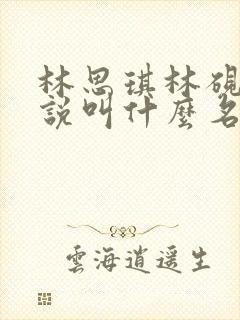 林思琪林硯
說叫什麼名
雲海逍遥生